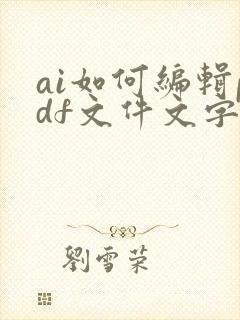 ai如何編輯p
df文件文字
劉雪荣